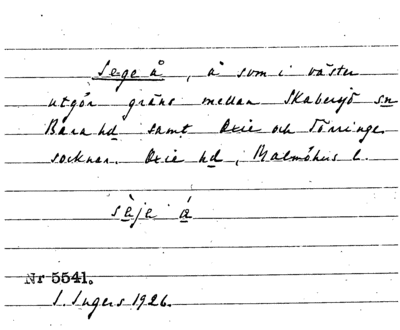 Sege å, å som i väster
utgör gräns mellan Skabersjö sn
Bara hd samt Oxie och Törringe
socknar. Oxie hd, Malmöhus l.
sèje å
Nr 5541.
I. Ingers 1926.